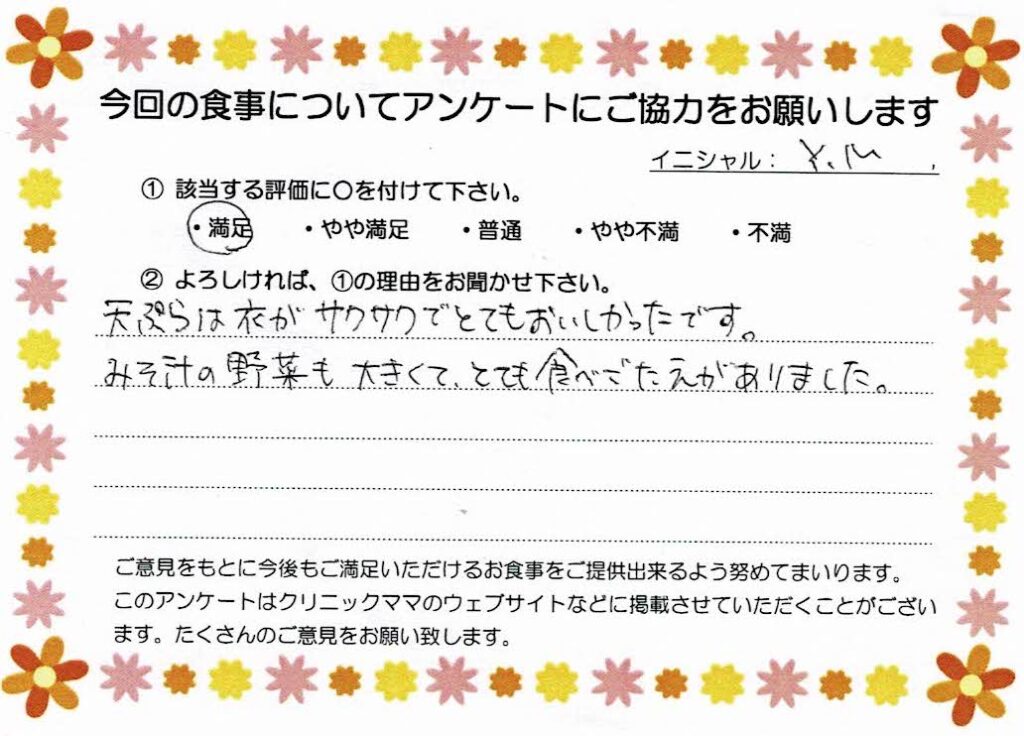 今回の食事についてアンケートにご協力をお願いします
イニシャル： Y.M
① 該当する評価に〇を付けて下さい。
・満足 ・やや満足 ・普通 ・やや不満 ・不満
② よろしければ、①の理由をお聞かせ下さい。
天ぷらは衣がサクサクでとてもおいしかったです。
みそ汁の野菜も大きくて、とても食べごたえがありました。
ご意見をもとに今後もご満足いただけるお食事をご提供出来るよう努めてまいります。
このアンケートはクリニックママのウェブサイトなどに掲載させていただくことがござい
ます。たくさんのご意見をお願い致します。